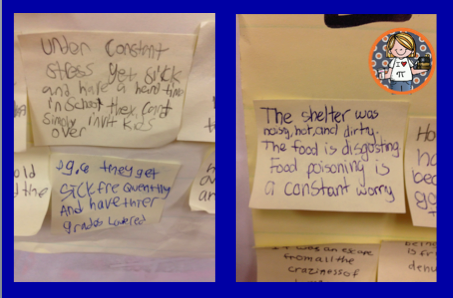 under constant
stress yet sick
and have a hard time
in school they cant
simply invit kids
over
old
the
29.50 they get
sick frequently
And have their
grades lowered
The shelter was
noisy, hot, and dirty.
The food is disgusting
Food poisoning is
a constant worry
I ♥
π
Ho
ha
bec
go
It was an escape
from all the
craziness of
is fr
denu